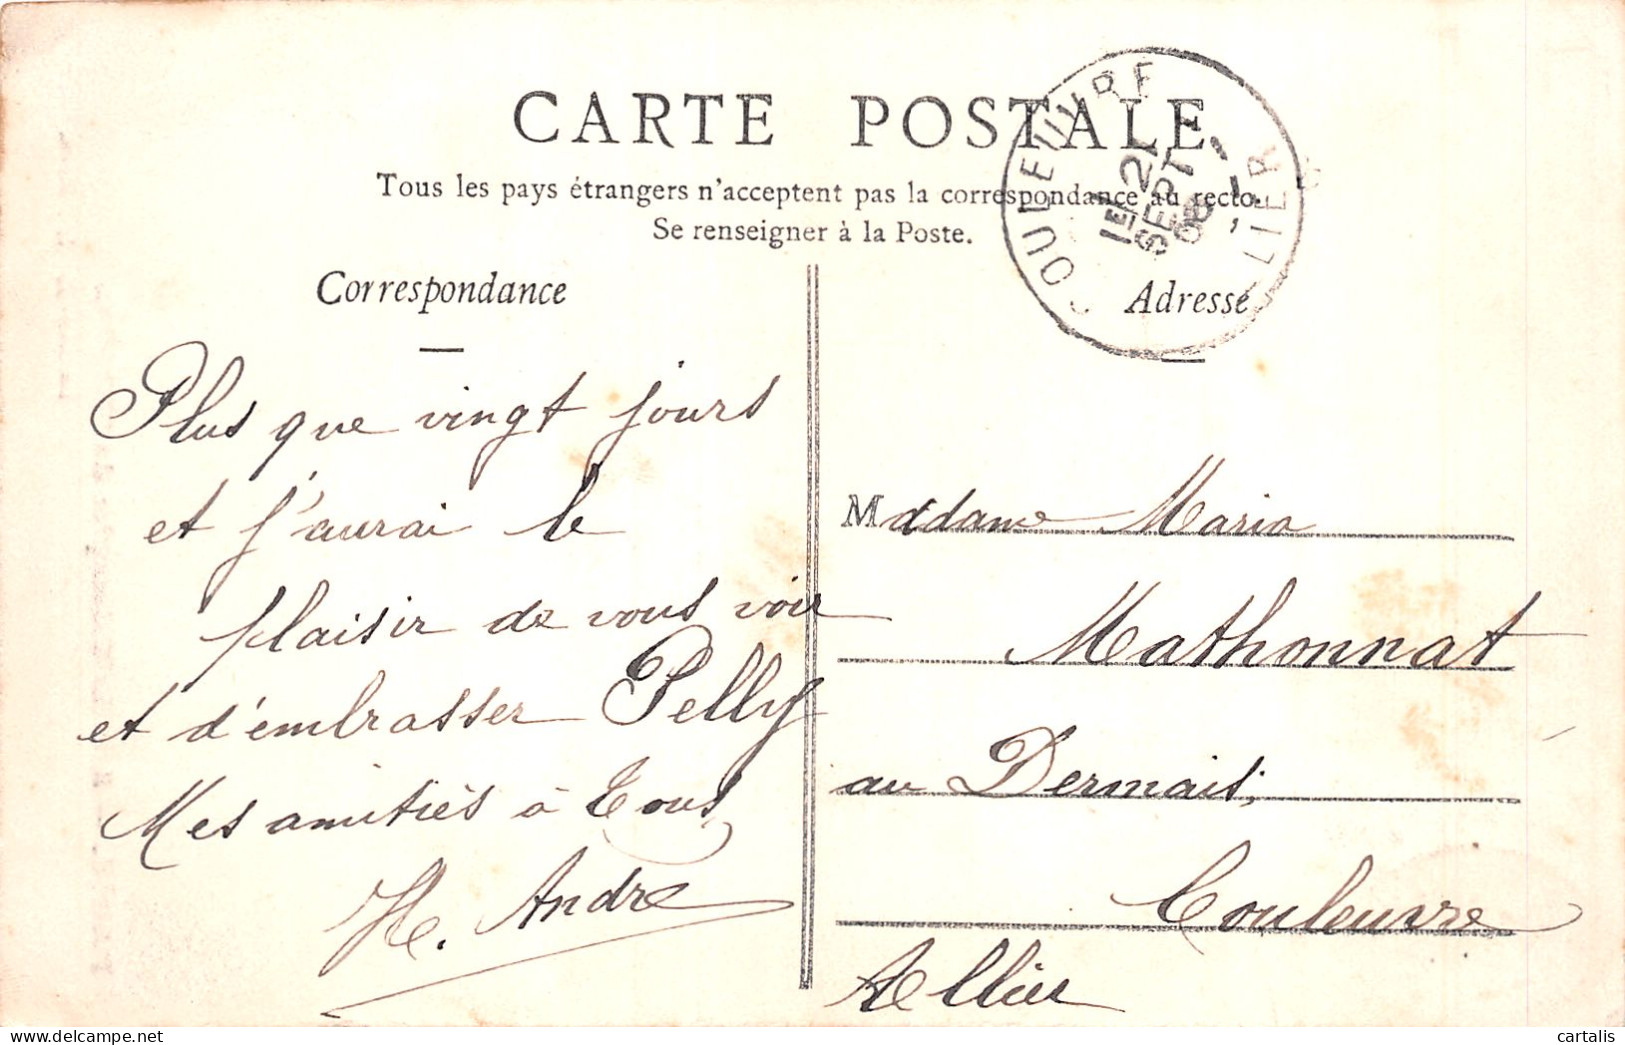 CARTE POSTALE
Tous les pays étrangers n'acceptent pas la correspondance au recto.
Se renseigner à la Poste.
COULEUVRE
ALLIER
1E 21
SEPT
06
Correspondance
Plus que vingt jours
et j'aurai le
plaisir de vous voir
et d'embrasser Pelly
Mes amitiés à Tous,
H. André
Adresse
Madame Maria
Mathonnat
au Dermais,
Couleuvre
Allier
cartalis